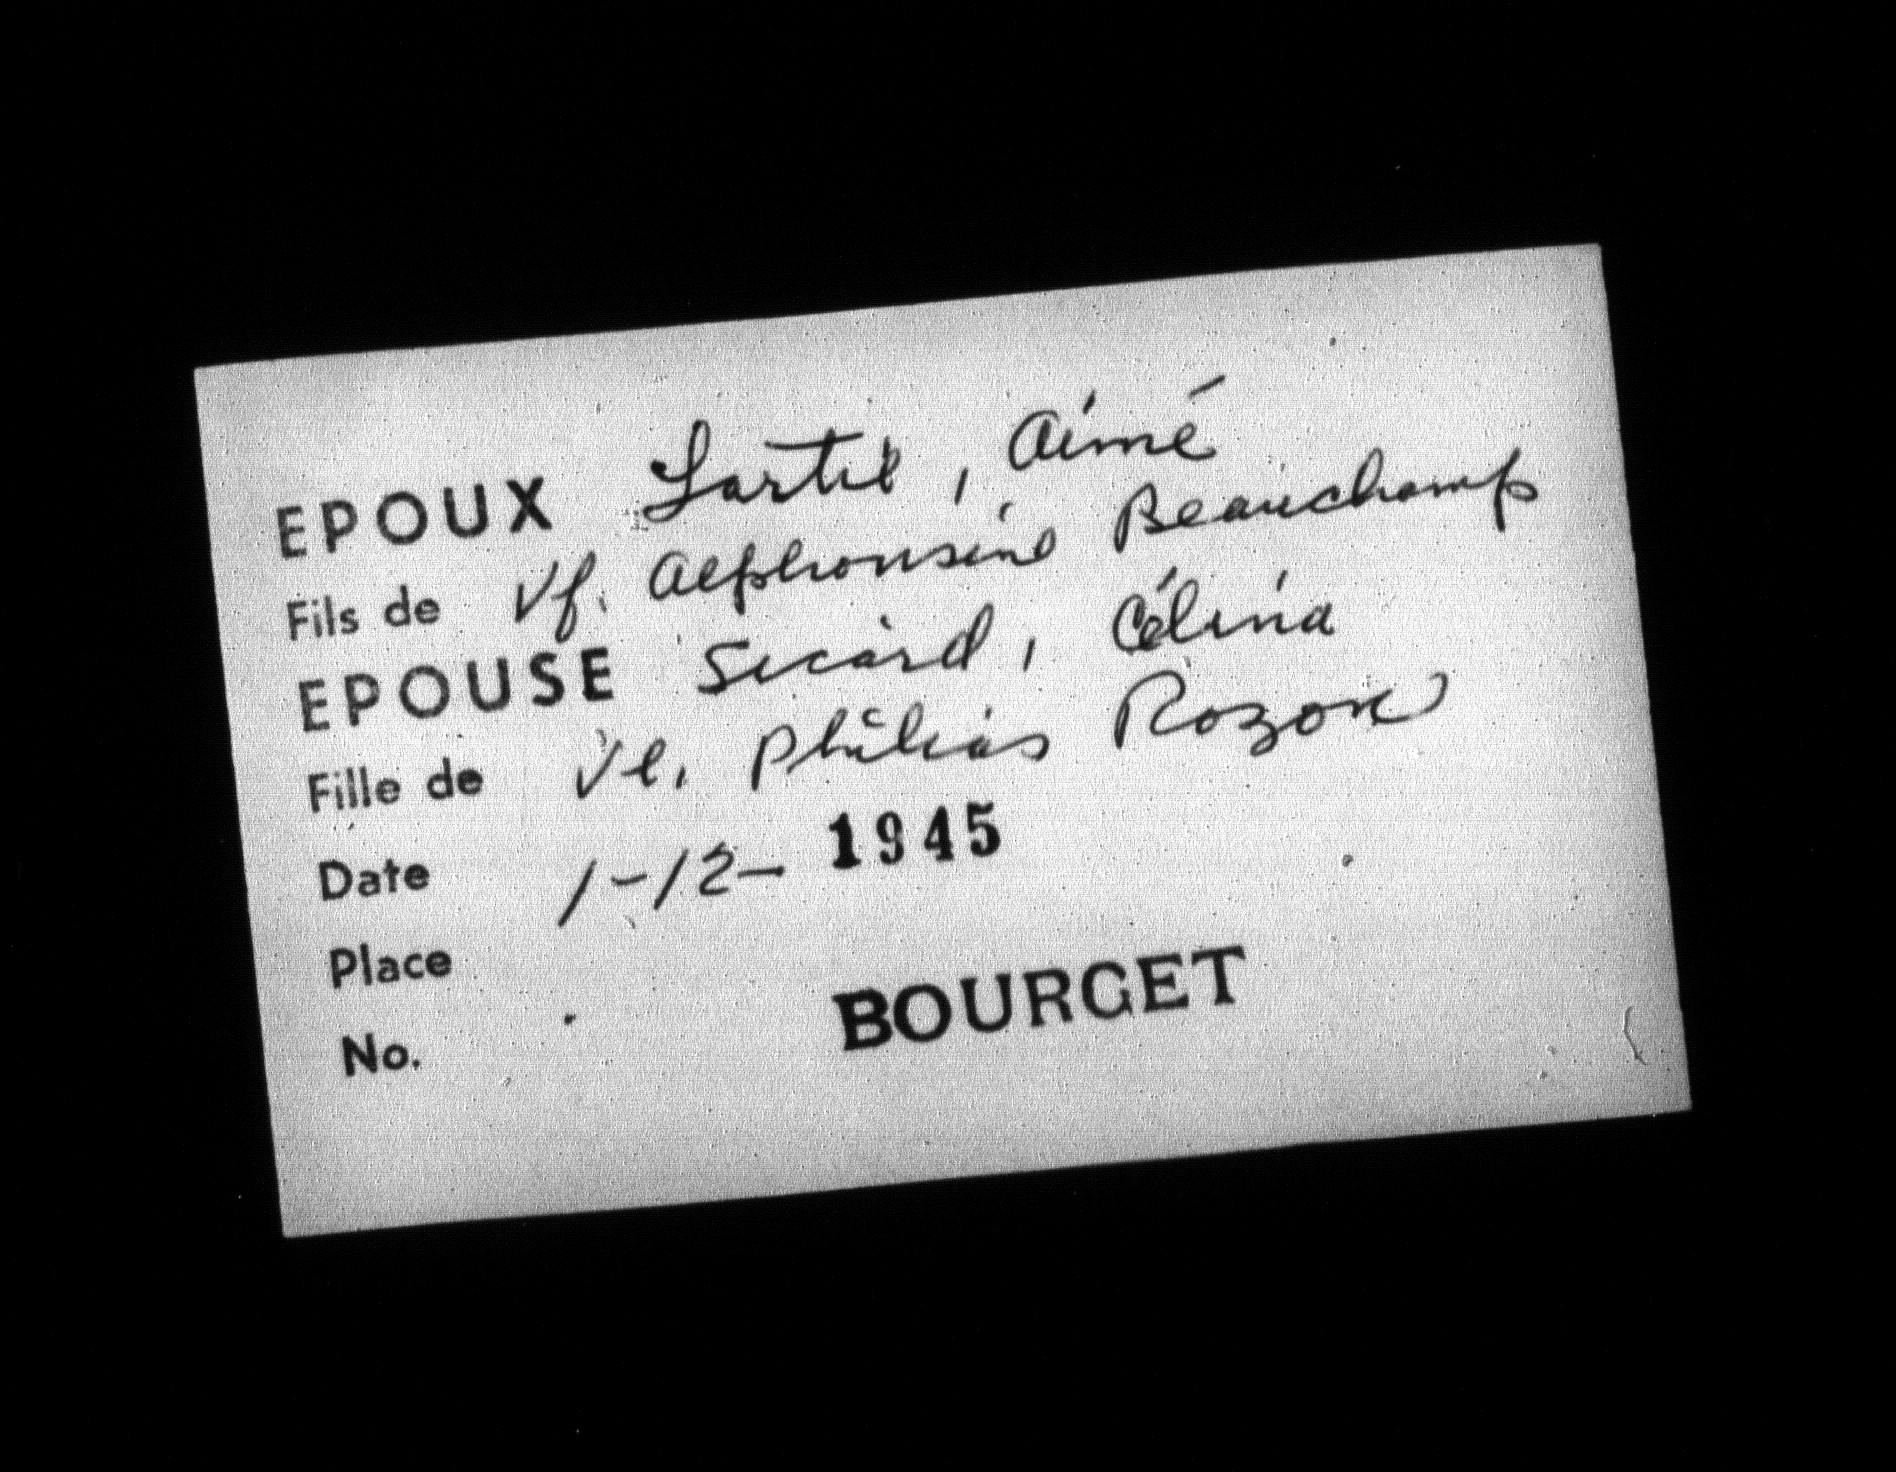 EPOUX Lartil, Aimé
Fils de Vf. Alphonsine Beauchamp
EPOUSE Sicard, Célina
Fille de Ve. Philias Rozon
Date 1-12-1945
Place
No. BOURGET